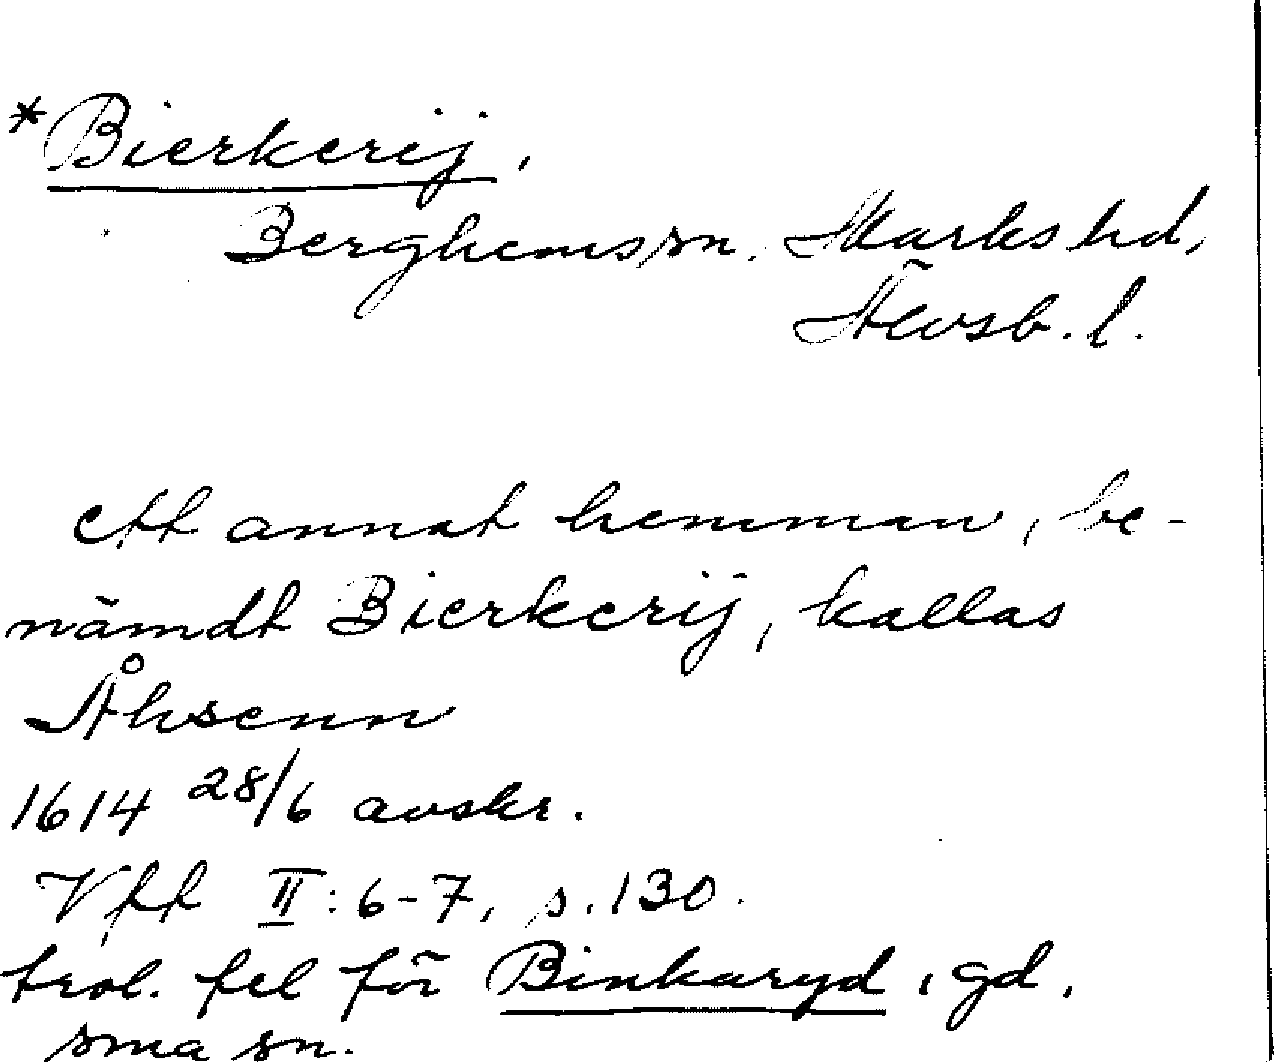 *Bierkerij.
Berghems sn. Marks hd,
Älvsb. l.
ett annat hemman, be-
nämdt Bierkerij, kallas
Åhsenn
1614 28/6 avskr.
Vff II: 6-7, s. 130.
trol. fel för Binkaryd, gd,
sma sn.